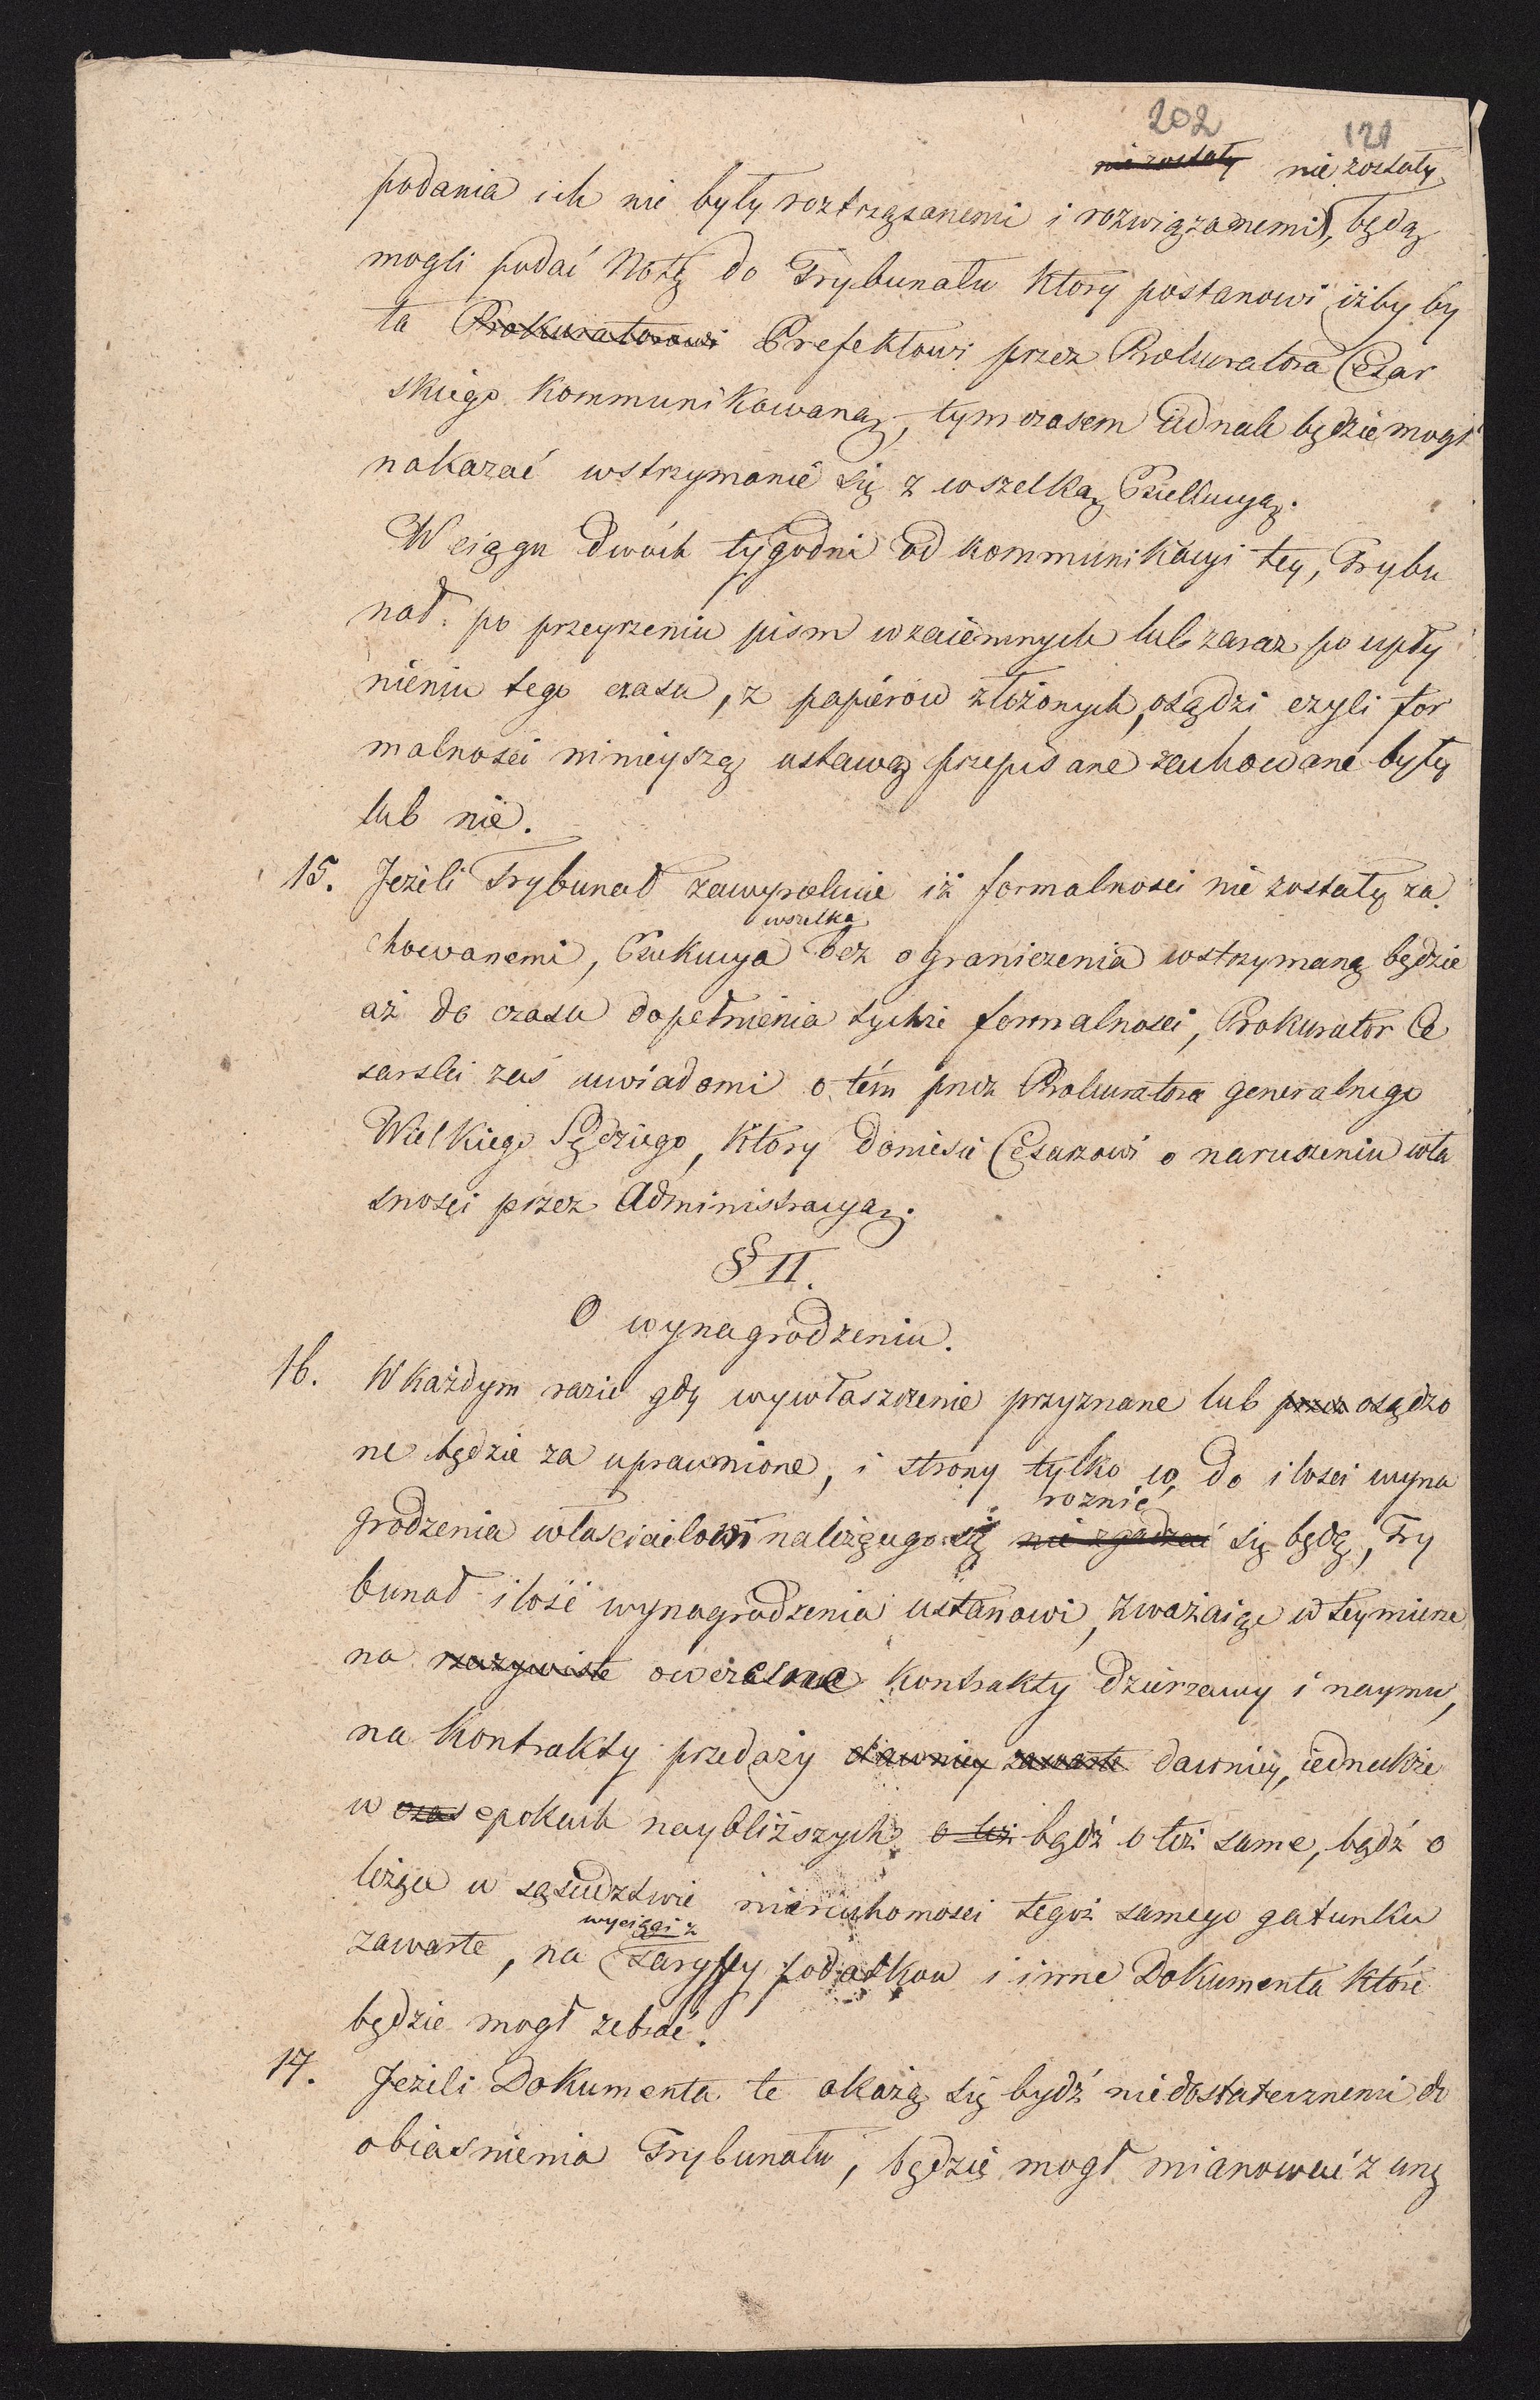 202 121
nie zostały nie zostały
podania ich nie były roztrząsanemi i rozwiązanemi, będą
mogli podać Notę do Trybunału który postanowi iżby by
ła Prokuratorowi Prefektowi przez Prokuratora Cesar
skiego kommunikowaną, tymczasem iednak będzie mogł
nakazać wstrzymanie się z wszelką Exekucyą.
W ciągu dwóch tygodni od kommunikacyi tey, Trybu
nał po przeyrzeniu pism wzaiemnych lub zaraz po upły
nieniu tego czasu, z papierów złożonych, osądzi czyli for
malności ninieyszą ustawą przepisane zachowane były
lub nie.
15. Jeżeli Trybunał zawyrokuie iż formalności nie zostały za
wszelka
chowanemi, Exekucya bez ograniczenia wstrzymaną będzie
aż do czasu dopełnienia tychże formalności, Prokurator Ce
sarski zaś uwiadomi o tém przez Prokuratora generalnego
Wielkiego Sędziego, który doniesie Cesarzowi o naruszeniu wła
sności przez Administracyą.
§ II.
O wynagrodzeniu.
16. W każdym razie gdy wywłaszczenie przyznane lub przez osądzo
ne będzie za uprawnione, i strony tylko co do ilości wyna
roznić
grodzenia właścicielowi należącego się nie zgadzać się będą, Try
bunał ilość wynagrodzenia ustanowi, zważaiąc w tey mierze
na rzeczywiste owczesne kontrakty dzierzawy i naymu,
na kontrakty przedaży dawniey zawarte dawniey, iednakże
w czas epokach naybliższych o też bądź o też same, bądź o
leżące w sąsiedztwie nieruchomości tegoż samego gatunku
wyciągi z
zawarte, na taryffy podatkow i inne Dokumenta które
będzie mogł zebrać.
17. Jeżeli Dokumenta te okażą się bydź niedostatecznemi do
obiaśnienia Trybunału, będzie mogł mianować z urzę